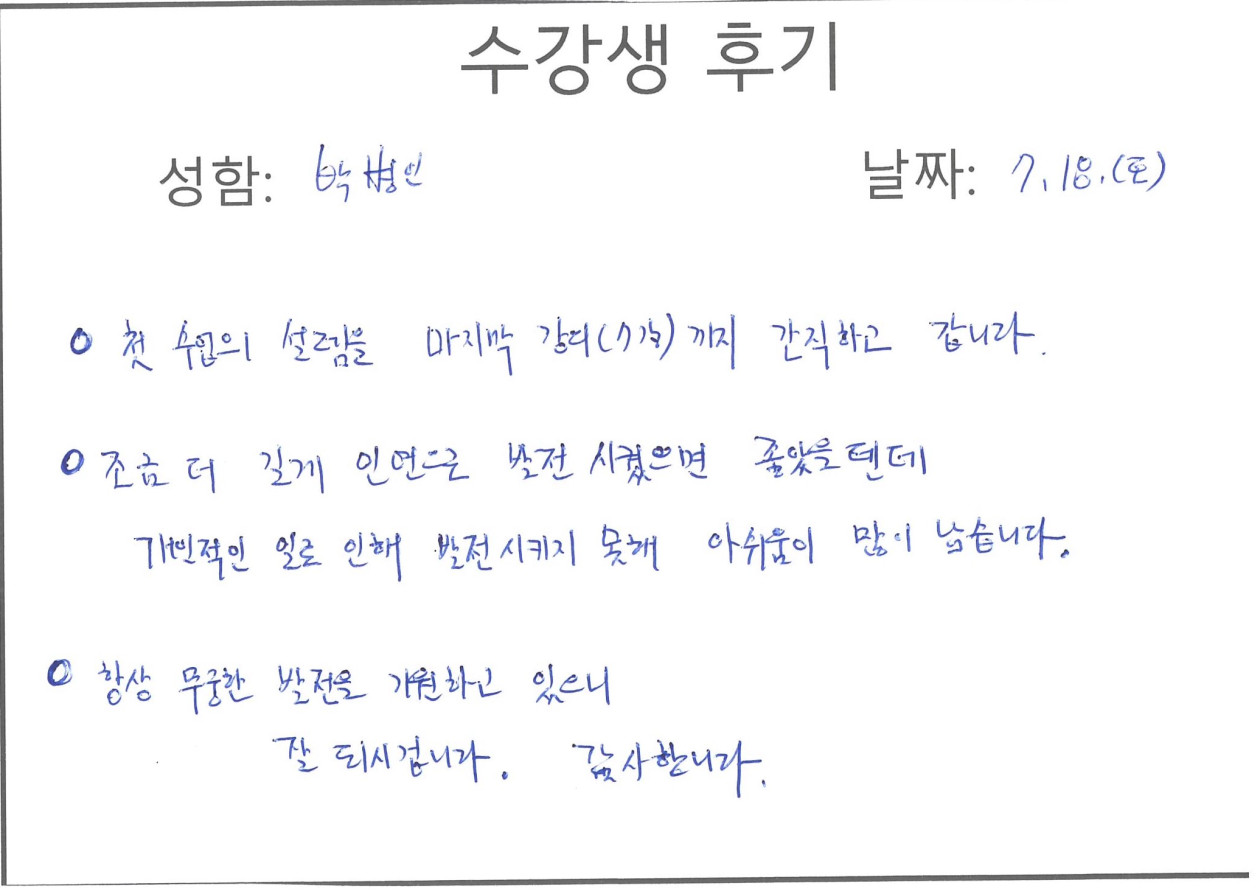 수강생 후기
성함: 박병인
날짜: 7.18.(토)
o 첫 수업의 설레임을 마지막 강의(7강)까지 간직하고 갑니다.
o 조금 더 길게 인연으로 발전 시켰으면 좋았을텐데
개인적인 일로 인해 발전시키지 못해 아쉬움이 많이 남습니다.
o 항상 무궁한 발전을 기원하고 있으니
잘 되시겁니다. 감사합니다.